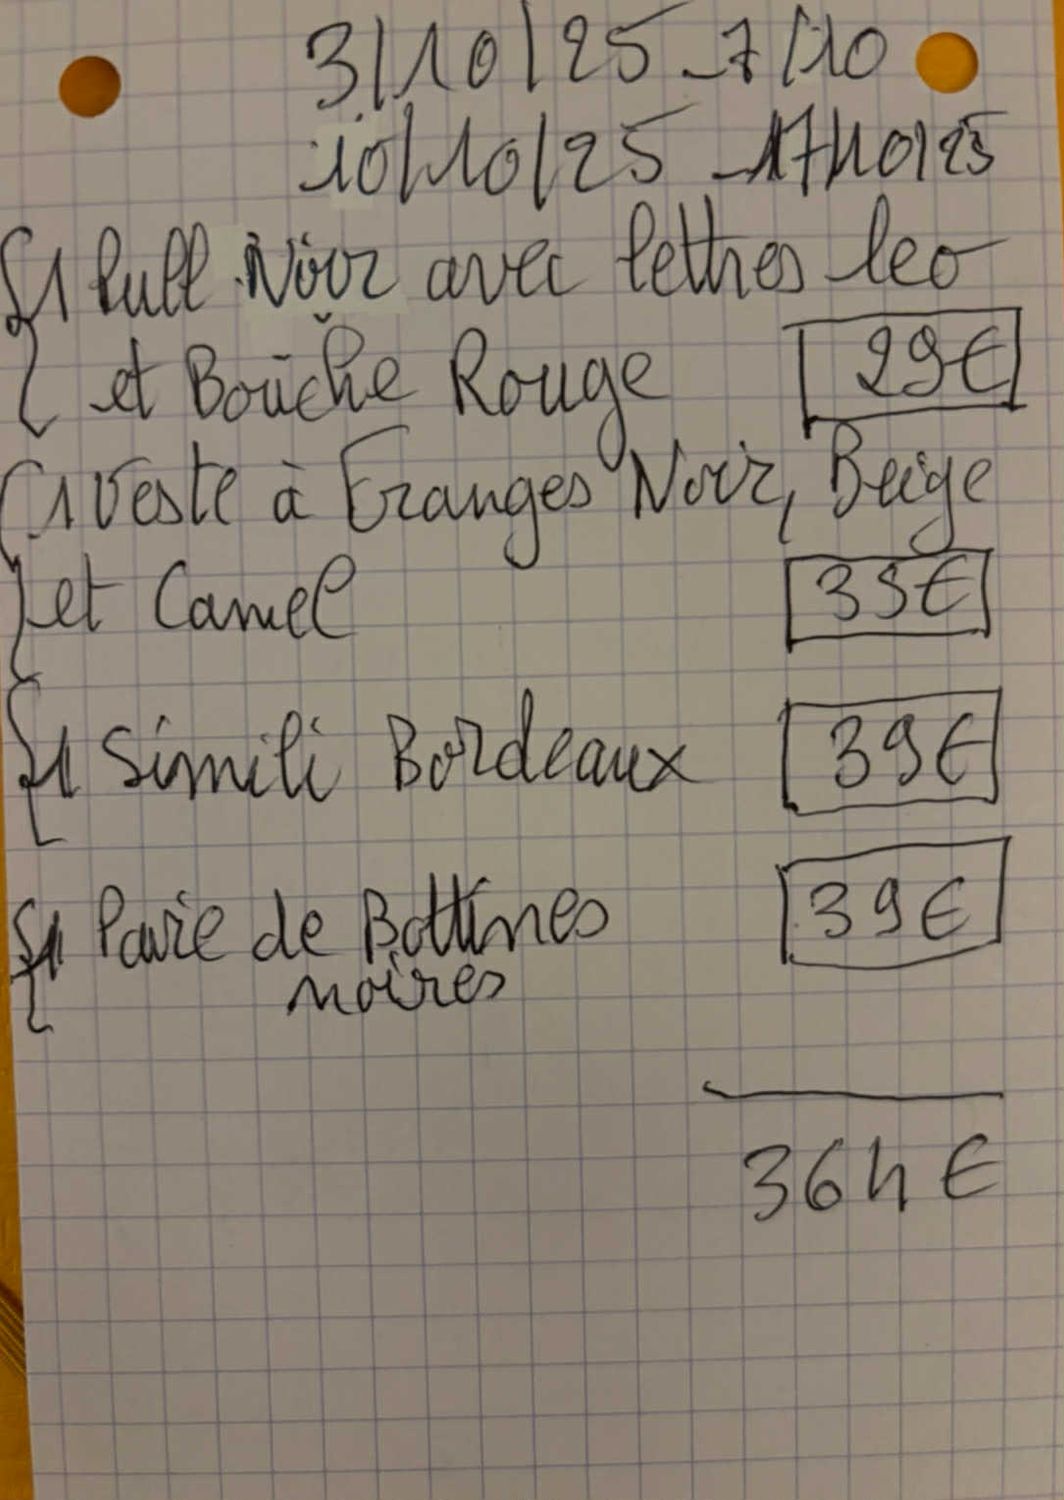 3/10/25 - 7/10
10/10/25 - 17/10/25
1 Pull Noir avec lettres leo
et Bouche Rouge 29€
1 Veste à Franges Noir, Beige
et Camel 35€
1 Simili Bordeaux 39€
1 Paire de Bottines 39€
noires
364 €